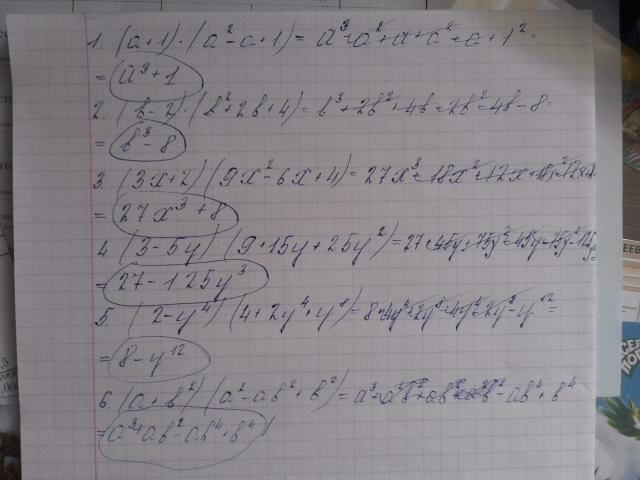 1. (a+1)·(a²-a+1)= a³-a²+a+a²-a+1²=
= a³+1
2. (b-2)·(b²+2b+4)=b³+2b²+4b-2b²-4b-8=
= b³-8
3. (3x+2)(9x²-6x+4)=27x³-18x²+12x+18x²-12x+8
= 27x³+8
4 (3-5y)(9+15y+25y²)=27+45y+75y²-45y-75y²-125y³
= 27-125y³
5. (2-y⁴)(4+2y⁴+y⁸)=8+4y⁴+2y⁸-4y⁴-2y⁸-y¹²=
= 8-y¹²
6. (a+b²)(a²-ab²+b²)=a³-a²b²+ab²+a²b²-ab⁴+b⁴
= a³+ab²-ab⁴+b⁴